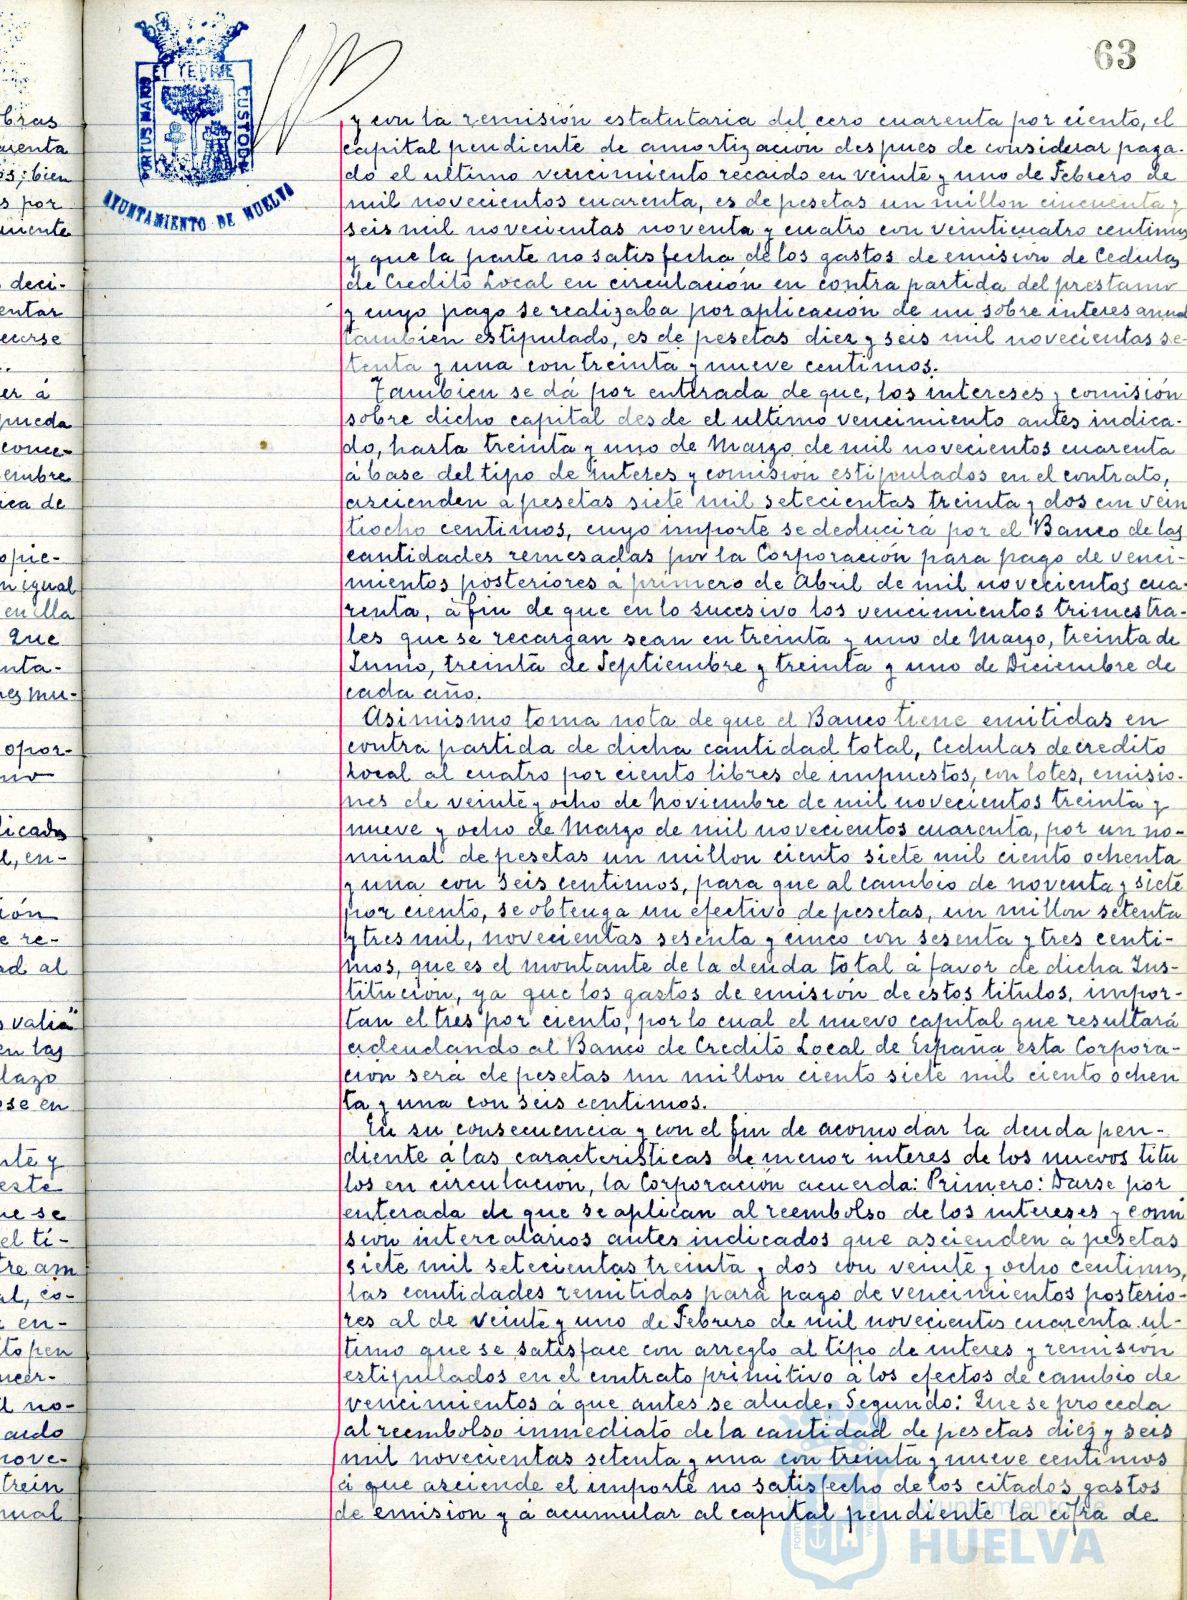 63
PORTUS MARIS ET TERRÆ CUSTODIA
AYUNTAMIENTO DE HUELVA
y con la remisión estatutaria del cero cuarenta por ciento, el
capital pendiente de amortización despues de considerar paga-
do el ultimo vencimiento recaido en veinte y uno de Febrero de
mil novecientos cuarenta, es de pesetas un millon cincuenta y
seis mil novecientas noventa y cuatro con veinticuatro centimos
y que la parte no satisfecha de los gastos de emisión de Cedulas
de Credito Local en circulación en contra partida del prestamo
y cuyo pago se realizaba por aplicación de un sobre interes anual
tambien estipulado, es de pesetas diez y seis mil novecientas se-
tenta y una con treinta y nueve centimos.
Tambien se dá por enterada de que, los intereses y comisión
sobre dicho capital desde el ultimo vencimiento antes indica-
do, hasta treinta y uno de Marzo de mil novecientos cuarenta
á base del tipo de interes y comisión estipulados en el contrato,
ascienden a pesetas siete mil setecientas treinta y dos con vein
tiocho centimos, cuyo importe se deducirá por el Banco de las
cantidades remesadas por la Corporación para pago de venci-
mientos posteriores á primero de Abril de mil novecientos cua-
renta, á fin de que en lo sucesivo los vencimientos trimestra-
les que se recargan sean en treinta y uno de Marzo, treinta de
Junio, treinta de Septiembre y treinta y uno de Diciembre de
cada año.
Asimismo toma nota de que el Banco tiene emitidas en
contra partida de dicha cantidad total, Cedulas de credito
Local al cuatro por ciento libres de impuestos, con lotes, emisio-
nes de veinte y ocho de Noviembre de mil novecientos treinta y
nueve y ocho de Marzo de mil novecientos cuarenta, por un no-
minal de pesetas un millon ciento siete mil ciento ochenta
y una con seis centimos, para que al cambio de noventa y siete
por ciento, se obtenga un efectivo de pesetas, un millon setenta
y tres mil, novecientas sesenta y cinco con sesenta y tres centi-
mos, que es el montante de la deuda total á favor de dicha Ins-
titución, ya que los gastos de emisión de estos titulos, impor-
tan el tres por ciento, por lo cual el nuevo capital que resultará
adeudando al Banco de Credito Local de España esta Corpora-
ción será de pesetas un millon ciento siete mil ciento ochen
ta y una con seis centimos.
En su consecuencia y con el fin de acomodar la deuda pen-
diente á las caracteristicas de menor interes de los nuevos titu
los en circulación, la Corporación acuerda: Primero: Darse por
enterada de que se aplican al reembolso de los intereses y comi
sión intercalarios antes indicados que ascienden á pesetas
siete mil setecientas treinta y dos con veinte y ocho centimos,
las cantidades remitidas para pago de vencimientos posterio-
res al de veinte y uno de Febrero de mil novecientos cuarenta ul-
timo que se satisface con arreglo al tipo de interes y remisión
estipulados en el contrato primitivo á los efectos de cambio de
vencimientos á que antes se alude. Segundo: Que se proceda
al reembolso inmediato de la cantidad de pesetas diez y seis
mil novecientas setenta y una con treinta y nueve centimos
á que asciende el importe no satisfecho de los citados gastos
de emisión y á acumular al capital pendiente la cifra de
Ayuntamiento de
HUELVA